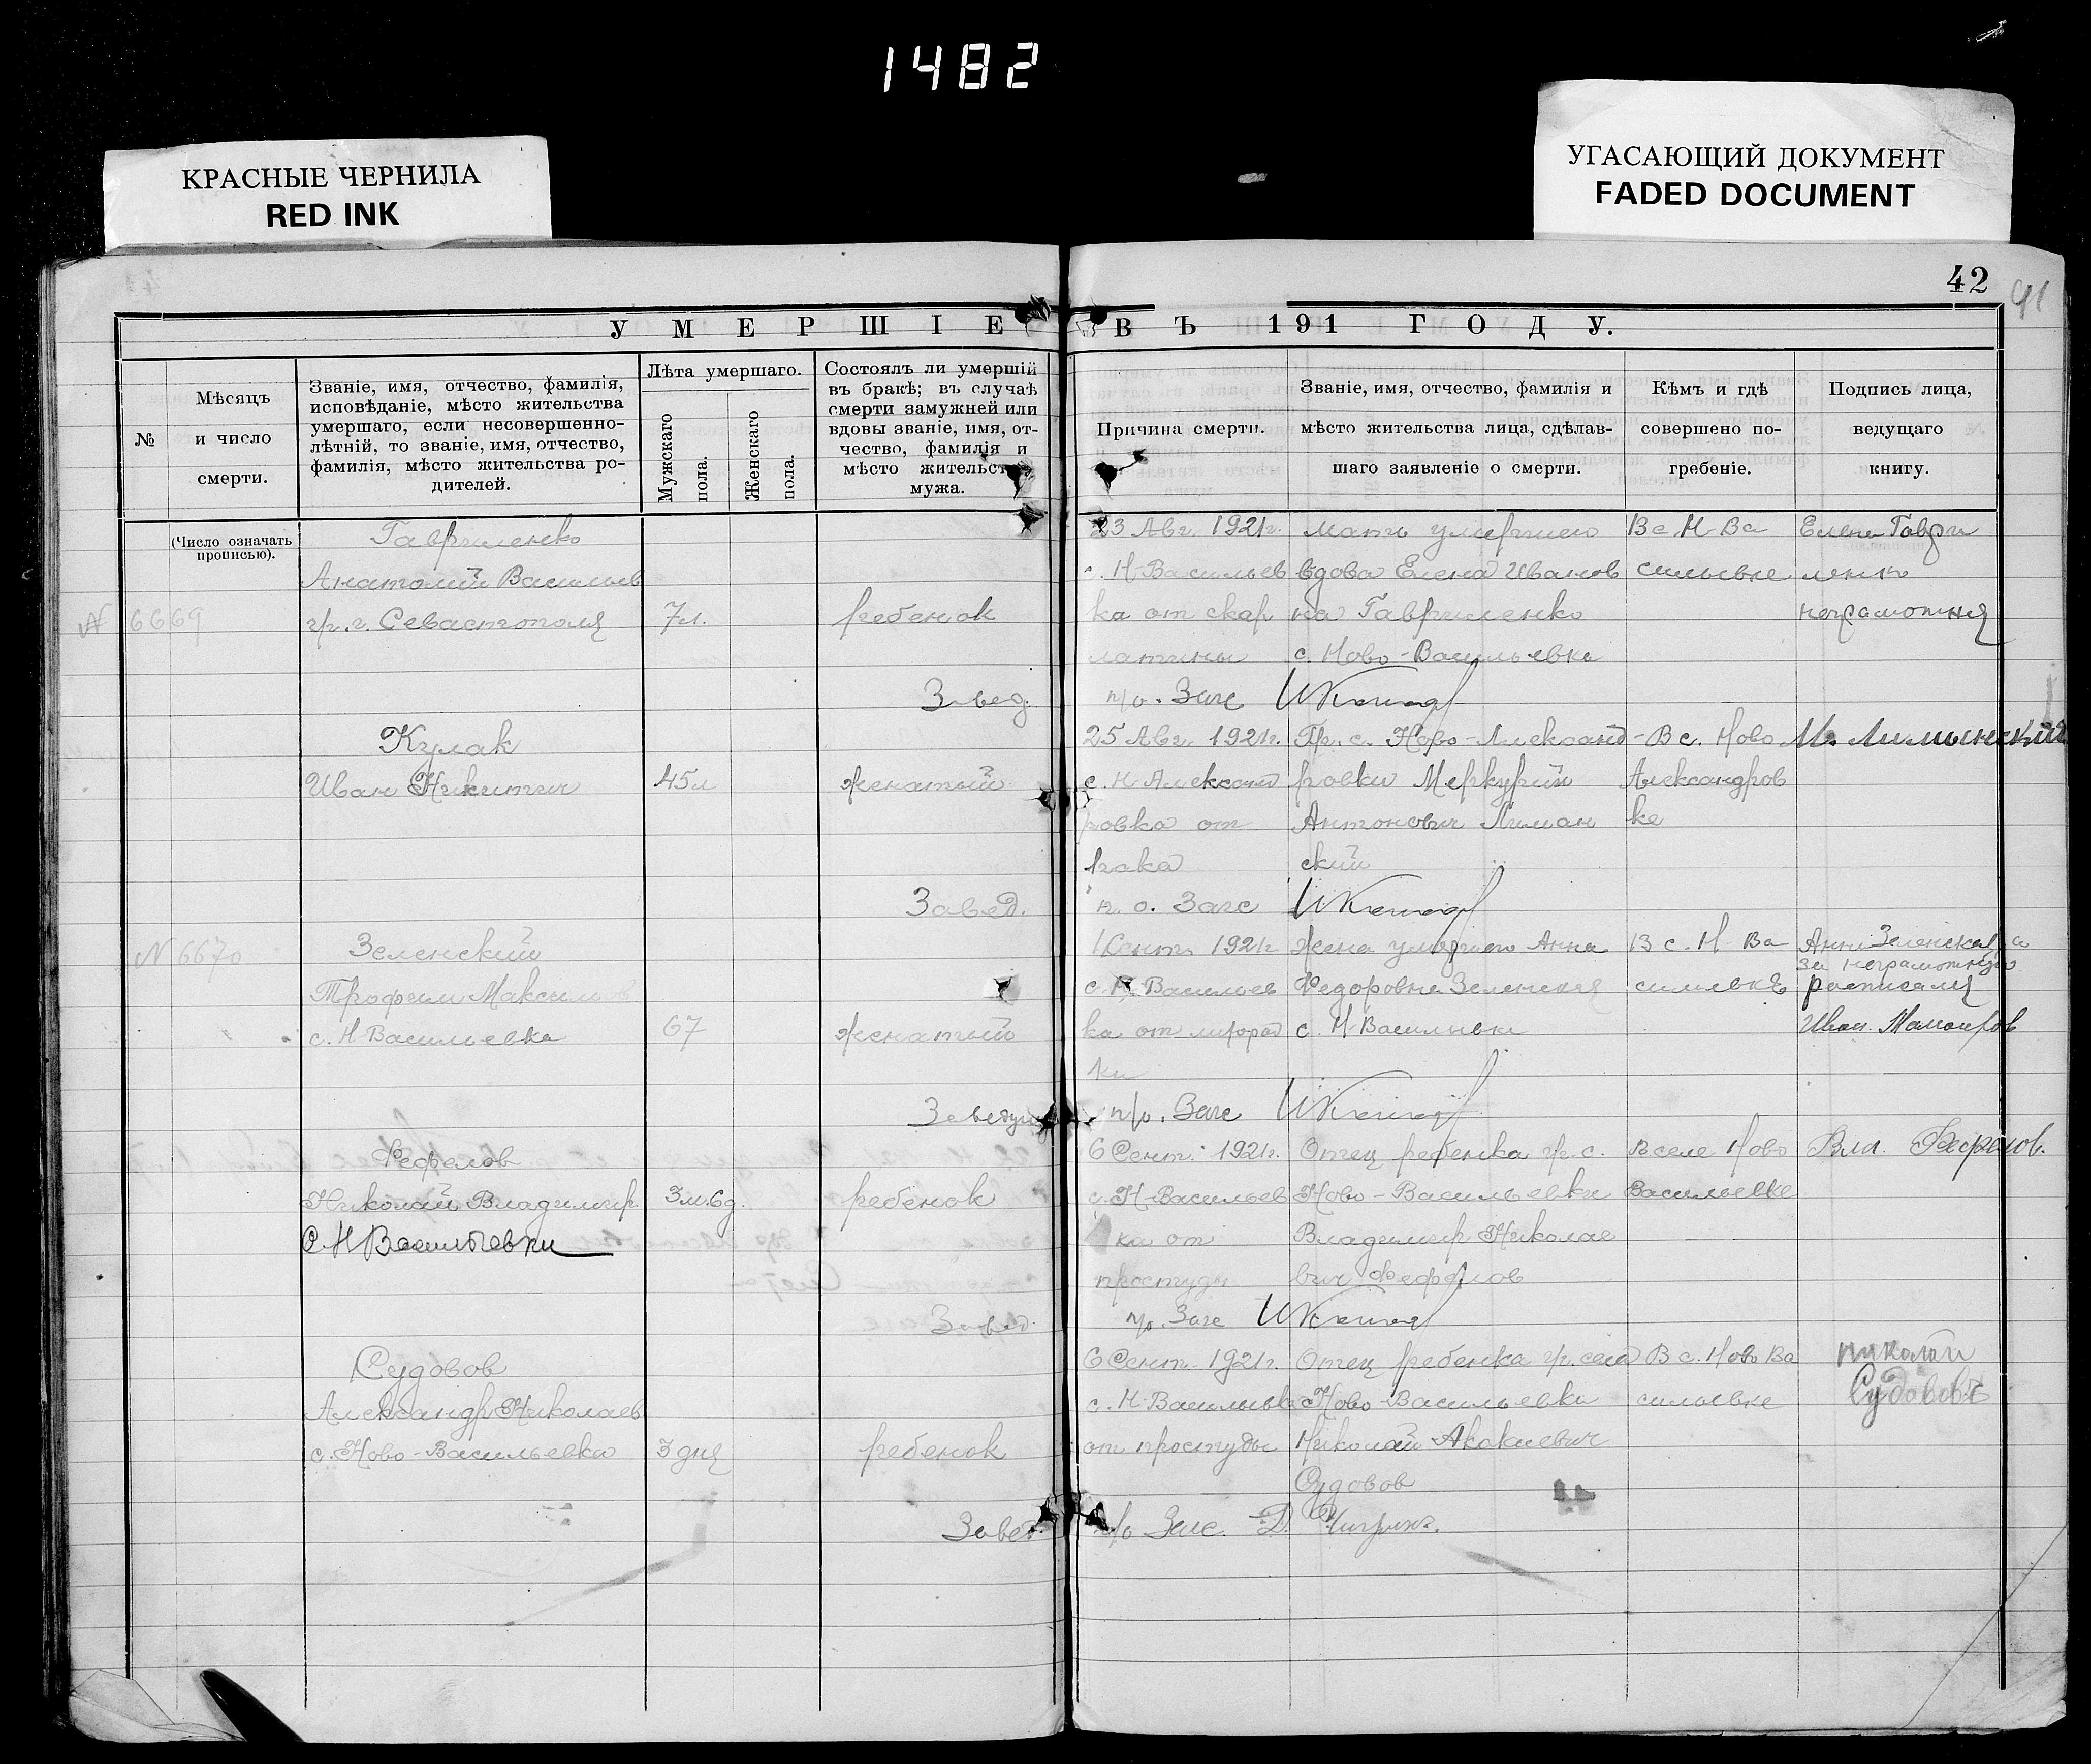 1482
КРАСНЫЕ ЧЕРНИЛА
RED INK
УГАСАЮЩИЙ ДОКУМЕНТ
FADED DOCUMENT
42
41
УМЕРШІЕ ВЪ 191 ГОДУ.
№
Мѣсяцъ
и число
смерти.
Званіе, имя, отчество, фамилія,
исповѣданіе, мѣсто жительства
умершаго, если несовершенно-
лѣтній, то званіе, имя, отчество,
фамилія, мѣсто жительства ро-
дителей.
Лѣта умершаго.
Мужскаго
пола.
Женскаго
пола.
Состоялъ ли умершій
въ бракѣ; въ случаѣ
смерти замужней или
вдовы званіе, имя, от-
чество, фамилія и
мѣсто жительства
мужа.
Причина смерти.
Званіе, имя, отчество, фамилія и
мѣсто жительства лица, сдѣлав-
шаго заявленіе о смерти.
Кѣмъ и гдѣ
совершено по-
гребеніе.
Подпись лица,
ведущаго
книгу.
(Число означать
прописью).
№ 6669
Гавриленко
Анатолий Васильев
гр. г. Севастополя
7 л.
ребенок
23 Авг. 1921г.
с. Н-Васильев
ка от скар
латины
мать умершего
вдова Елена Иванов
на Гавриленко
с. Ново-Васильевка
Вс. Н-Ва
сильевке
Елена Гаври
ленко
неграмотная
Завед.
п/о. Загс
Кулак
Иван Никитич
45 л
женатый
25 Авг. 1921г.
с. Н Александ
ровка от
рака
Гр. с. Ново-Александ
ровки Меркурий
Антонович Лиман
ский
В с. Ново
Александров
ке
М. Лиманский
Завед.
п. о. Загс
№ 6670
Зеленский
Трофим Максимов
с. Н-Васильевка
67
женатый
1 Сент. 1921г
с. Н-Васильев
ка от лихорад
ки
жена умершего Анна
Федоровна Зеленская
с. Н-Васильевки
В с. Н-Ва
сильевке
Анна Зеленская а
за неграмотную
росписался
Иван
Заведую
п/о. Загс
Фефелов
Николай Владимир.
С. Н Васильевки
3м.6д.
ребенок
6 Сент. 1921г.
с. Н-Васильев
ка от
простуды
Отец ребенка гр. с.
Ново-Васильевки
Владимир Николае
вич Фефелов
В селе Ново
Васильевке
Вла. Фефелов.
Завед.
п/о. Загс
Судовов
Александр Николаев
с. Ново-Васильевка
3 дня
ребенок
6 Сент. 1921г.
с. Н-Васильевка
от простуды
Отец ребенка гр. села
Ново-Васильевка
Николай Акакиевич
Судовов
В с. Ново Ва
сильевке
Николай
Судововъ
Завед.
п/о Загс. Д.